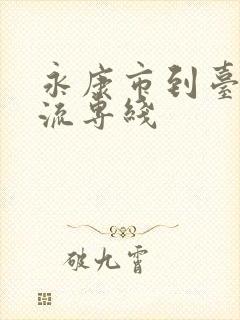 永康市到臺
流專綫
破九霄